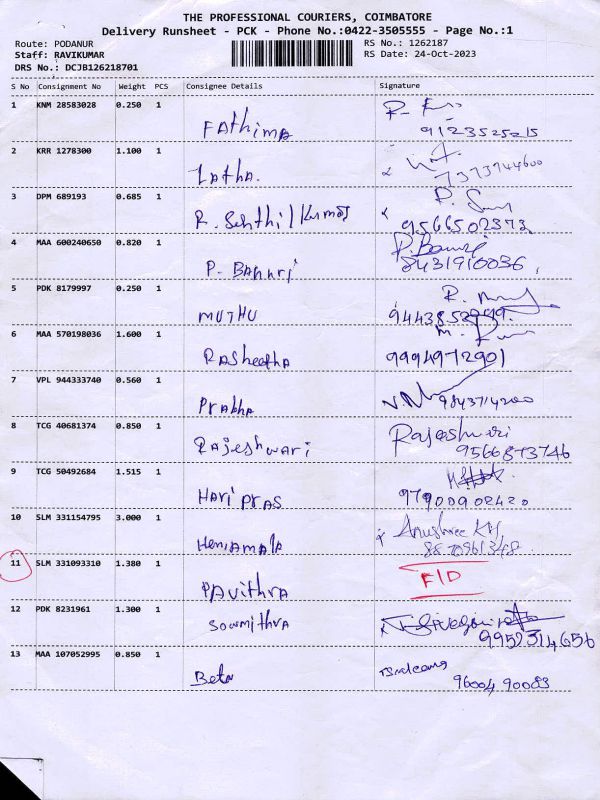 THE PROFESSIONAL COURIERS, COIMBATORE
Delivery Runsheet - PCK - Phone No.:0422-3505555 - Page No.:1
Route: PODANUR RS No.: 1262187
Staff: RAVIKUMAR RS Date: 24-Oct-2023
DRS No.: DCJB126218701
S No Consignment No Weight PCS Consignee Details Signature
1 KNM 28583028 0.250 1
Fathima 9123525215
2 KRR 1278300 1.100 1
Latha. 7373744600
3 DPM 689193 0.685 1
R. Senthil Kumar 9566502373
4 MAA 600240650 0.820 1
P. Bannri 8431910036
5 PDK 8179997 0.250 1
MUTHU
6 MAA 570198036 1.600 1
Rasheetha 9994972901
7 VPL 944333740 0.560 1
Prabha 9843714200
8 TCG 40681374 0.850 1 Rajeshwari
Rajeshwari 9566873746
9 TCG 50492684 1.515 1
Hari pras 97900902420
10 SLM 331154795 3.000 1 Anushree
Hemamala 8870961348
11 SLM 331093310 1.380 1
Pavithra F/D
12 PDK 8231961 1.300 1
Sowmithra 9952314656
13 MAA 107052995 0.850 1
96004 90083